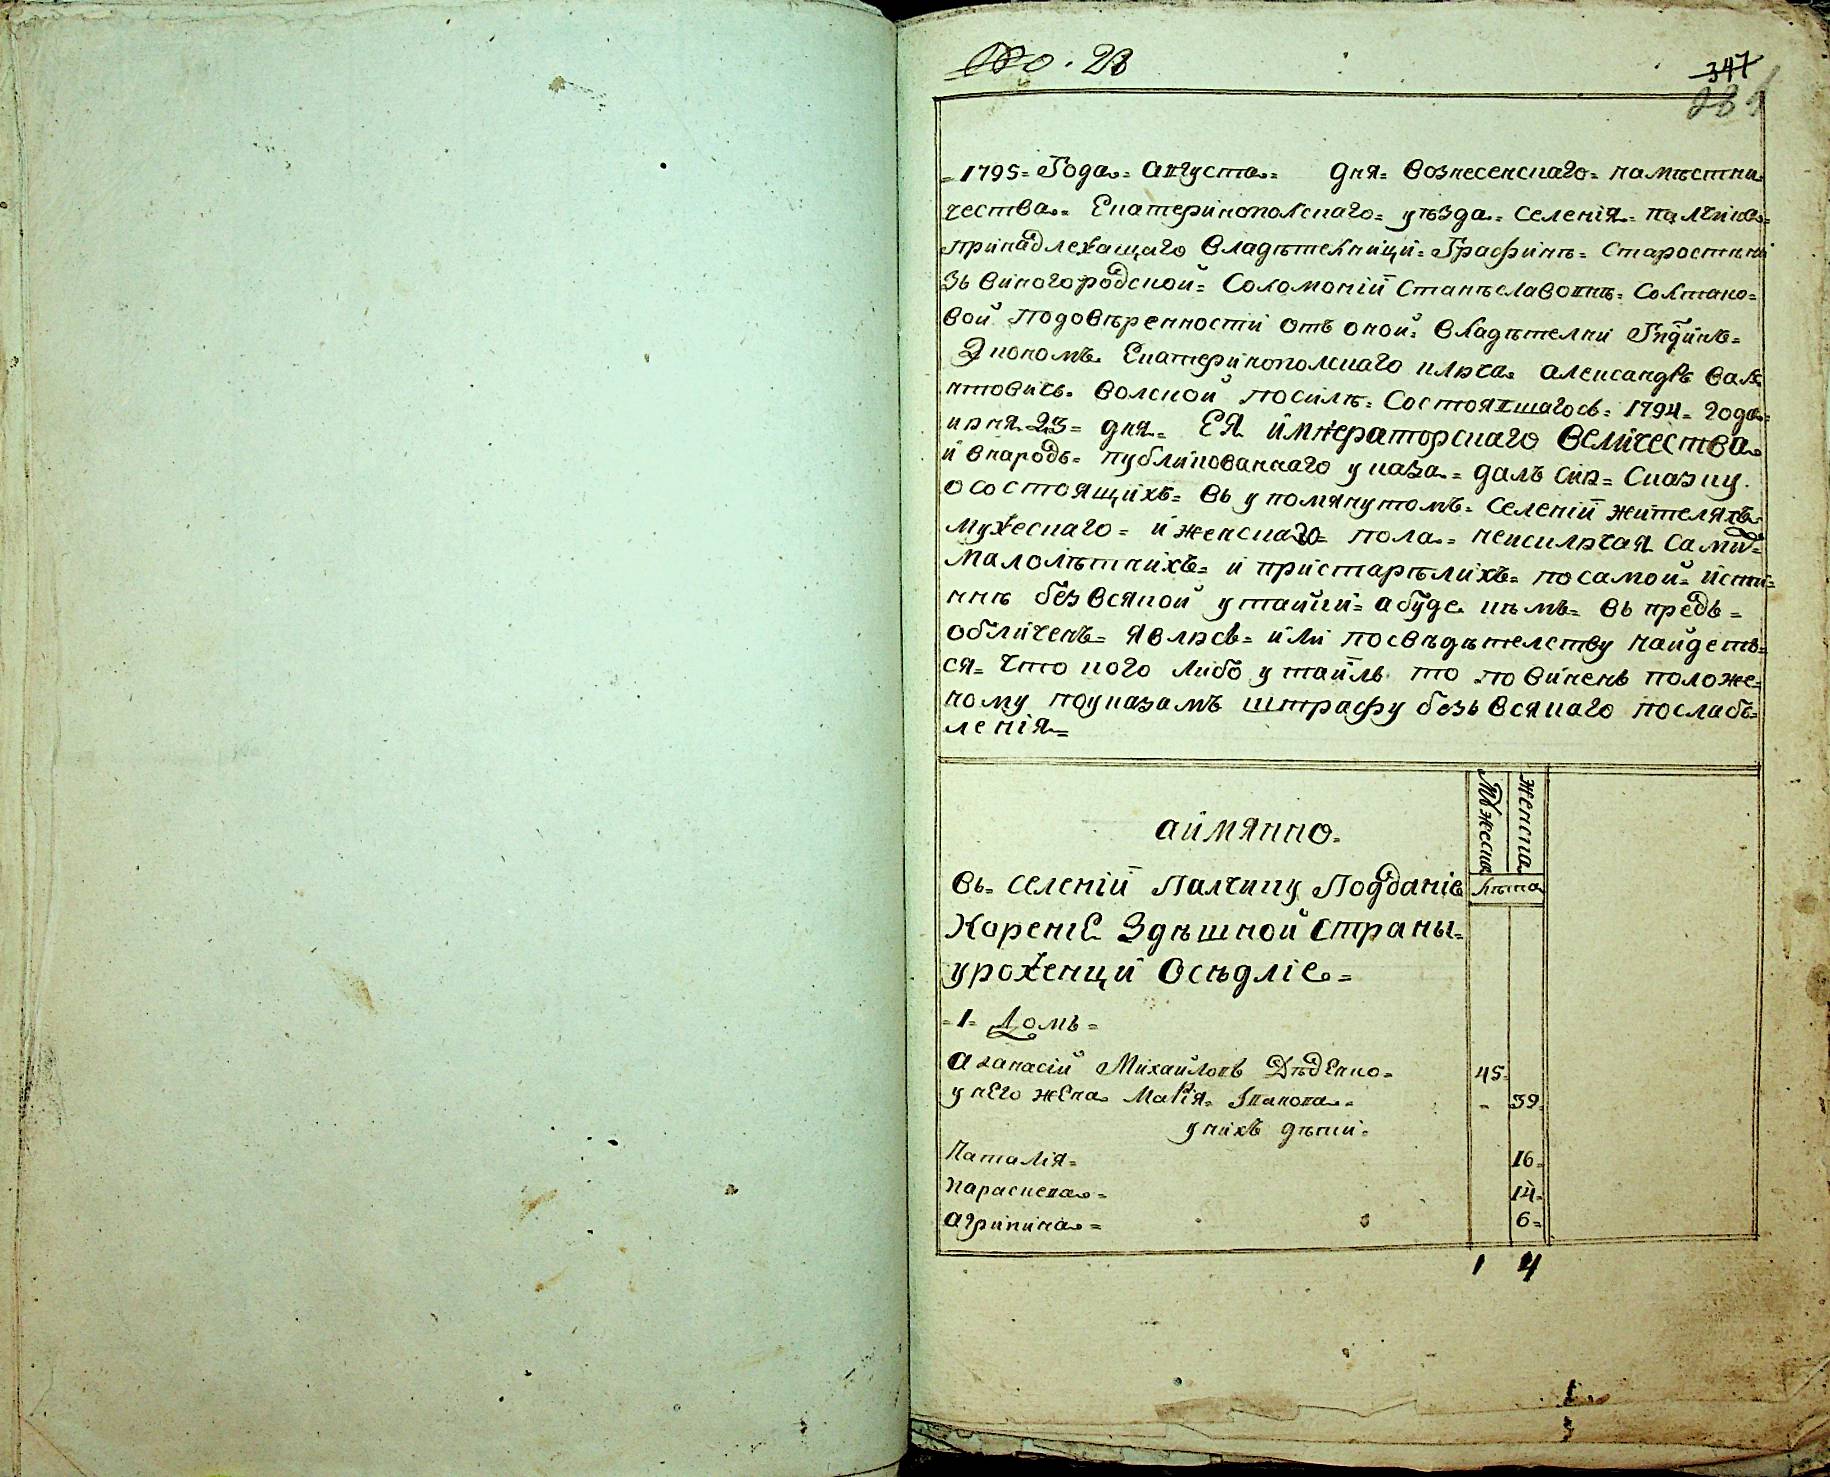 No. 28
347
281
1795 Года Августа дня Вознесенскаго намѣстни
чества Екатеринополскаго уѣзда селенія Палчика
принадлежащаго владѣтелници Графинѣ Старостини
Звѣногородской Соломоніи Станѣславовнѣ Солтико-
вой по довѣренности отъ оной владѣтелки
Экономъ Екатеринополскаго ключа Александръ
Волской посилѣ состоявшагось 1794 года
июня 23 дня ЕЯ императорскаго Величества
и внародъ публикованнаго указа далъ сию Сказку
о состоящихъ въ упомянутомъ селеніи жителяхъ
мужескаго и женскаго пола неисключая самихъ
малолѣтнихъ и пристарѣлихъ по самой исти-
ннѣ безъ всякой утайки а буде кѣмъ въ предъ
обличенъ явлюсь или по свѣдѣтелству найдеть-
ся что кого либо утаилъ то повиненъ положе-
ному по указамъ штрафу безъ всякаго послаб-
ленія
аимянно
Мужеска
женска
Въ селеніи Палчику Подданіе
лѣта
Коренiе Здѣшной Страны
уроженци Осѣдліе
1 Домъ
Афанасій Михайловъ Дѣденко 45
у него жена Марія Іванова 39
у нихъ дѣти
Наталія 16
Параскева 14
Агрипина 6
1 4